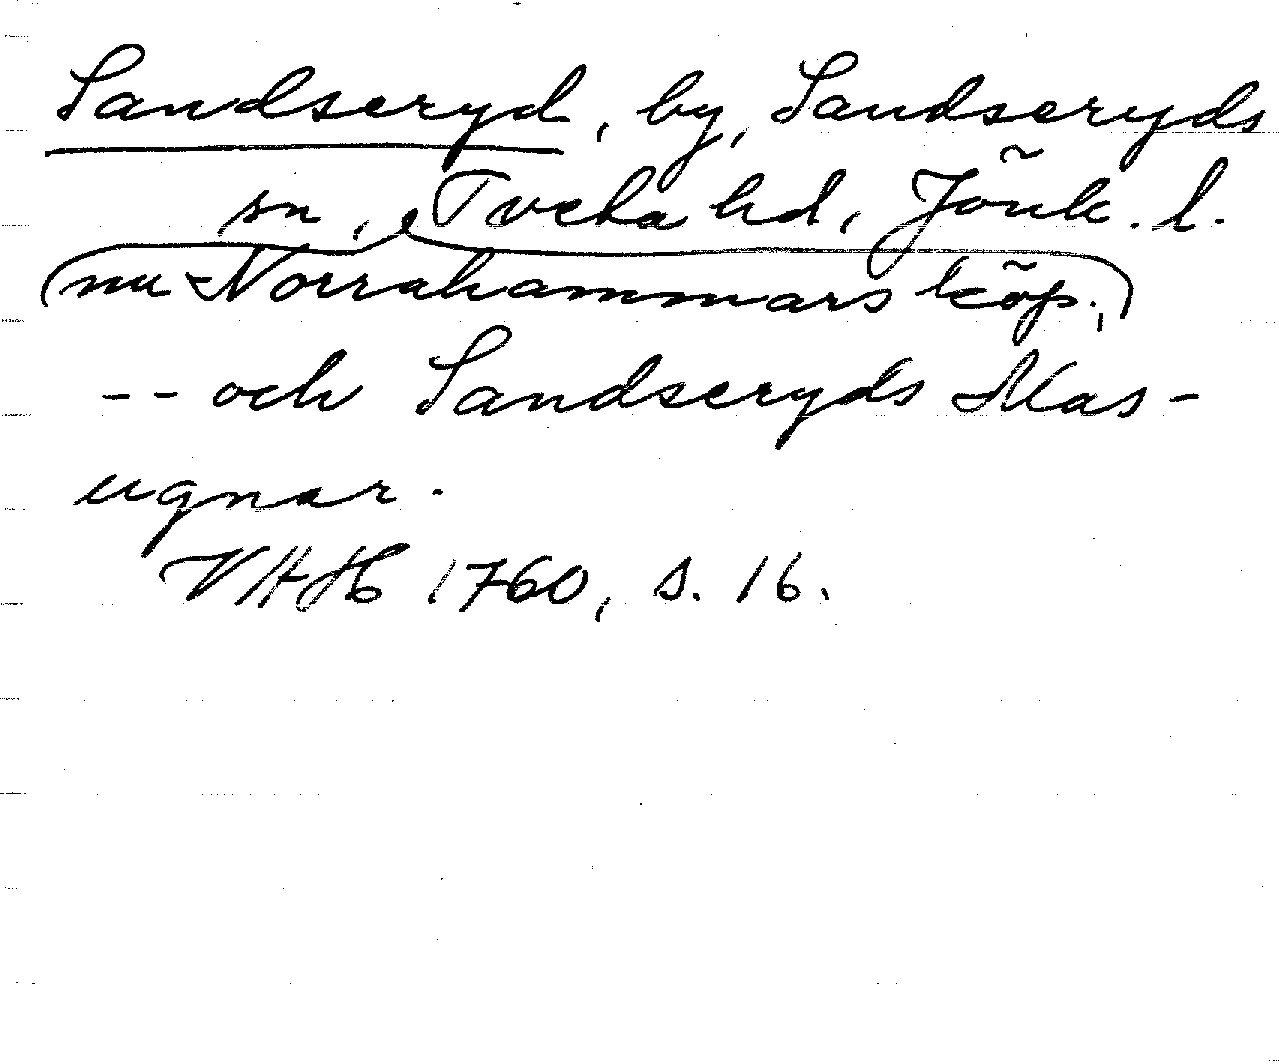 Sandseryd, by, Sandseryds
sn, Tveta hd, Jönk. l.
(nu Norrahammars köp.,)
-- och Sandseryds Mas-
ugnar.
VHH 1760, s. 16.